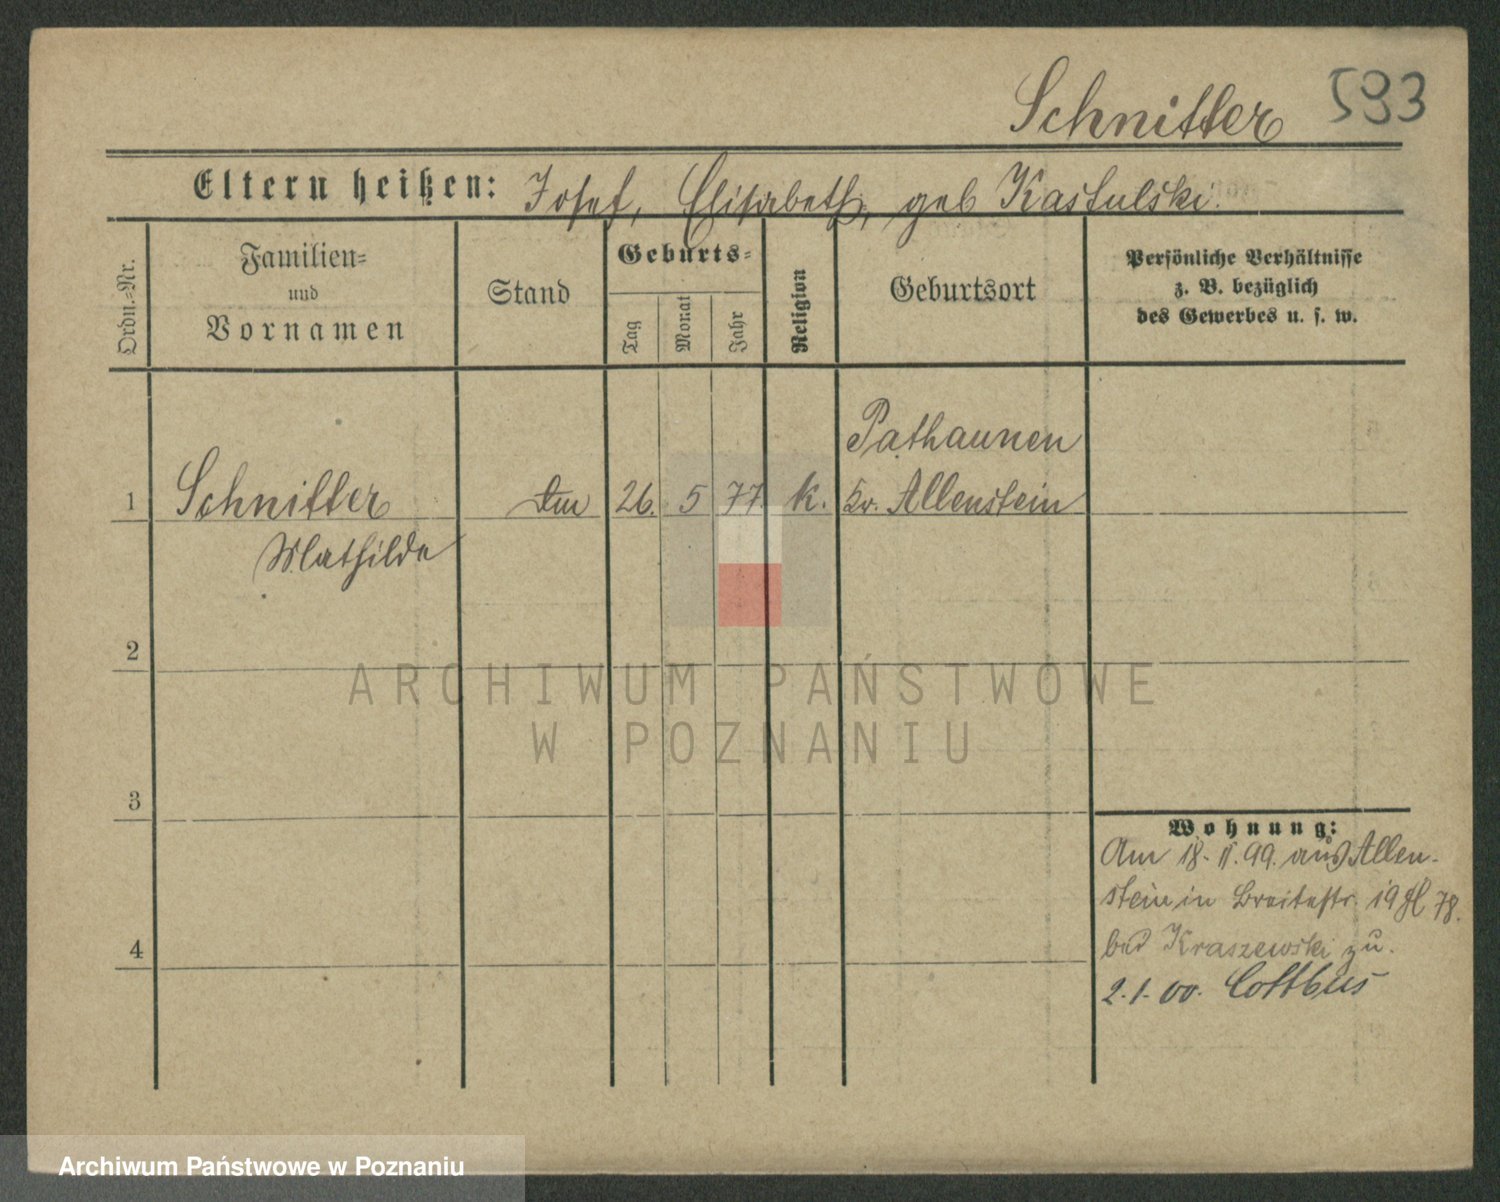 Schnitter 593
Eltern heißen: Josef, Elisabeth, geb Kastulski.
Ordn.-Nr.
Familien-
und
Vornamen
Stand
Geburts-
Tag
Monat
Jahr
Religion
Geburtsort
Persönliche Verhältnisse
z. B. bezüglich
des Gewerbes u. s. w.
Pathaunen
1 Schnitter 26. 5 77. k. Kr. Allenstein
Mathilde
2
3
4
Wohnung:
Am 18. 11. 99. aus Allen-
stein in Breitestr. 19
bei Kraszewski zu.
2. 1. 00. Cottbus
ARCHIWUM PAŃSTWOWE
W POZNANIU
Archiwum Państwowe w Poznaniu